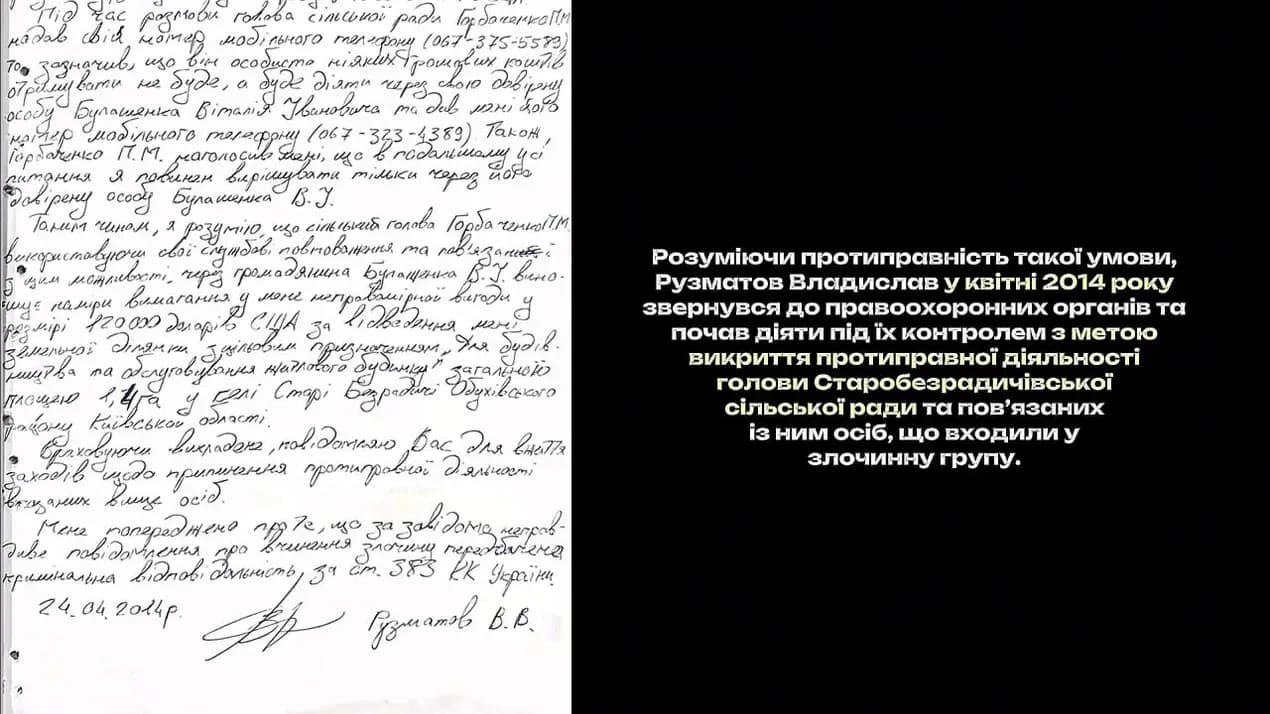 Під час розмови голова сільської ради Горбаченко П.М.
надав свій номер мобільного телефону (067-375-5589)
та зазначив, що він особисто ніяких грошових коштів
отримувати не буде, а буде діяти через свою довірену
особу Булашенка Віталія Івановича та дав мені його
номер мобільного телефону (067-323-4389) Також,
Горбаченко П.М. наголосив мені, що в подальшому усі
питання я повинен вирішувати тільки через його
довірену особу Булашенка В.І.
Таким чином, я розумію, що сільський голова Горбаченко П.М.
використовуючи свої службові повноваження та пов'язані
з цим можливості, через громадянина Булашенка В.І. вино-
шує наміри вимагання у мене неправомірної вигоди у
розмірі 120 000 доларів США за відведення мені
земельної ділянки з цільовим призначенням „для будів-
ництва та обслуговування житлового будинку" загальною
площею 1,4 га у селі Старі Безрадичі Обухівського
району Київської області.
Враховуючи викладене, повідомляю Вас для вжиття
заходів щодо припинення протиправної діяльності
вказаних вище осіб.
Мене попереджено про те, що за завідомо неправ-
диве повідомлення про вчинення злочину передбачена
кримінальна відповідальність за ст. 383 КК України.
24.04.2014р.
Рузматов В.В.
Розуміючи протиправність такої умови,
Рузматов Владислав у квітні 2014 року
звернувся до правоохоронних органів та
почав діяти під їх контролем з метою
викриття протиправної діяльності
голови Старобезрадичівської
сільської ради та пов’язаних
із ним осіб, що входили у
злочинну групу.